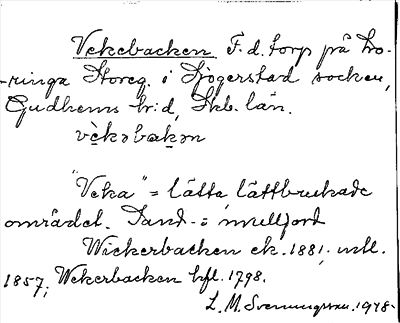 Vekebacken F. d. torp på Bro-
ringa Storeg. i Sjögerstad socken,
Gudhems h:d, Skb. län.
vèkəbakən
"Veka" = lätta lättbrukade
området. Sand- o. mulljord
Wickerbacken ek. 1881, mtl.
1857, Wekerbacken hfl. 1798.
L. M. Svenungsson. 1948